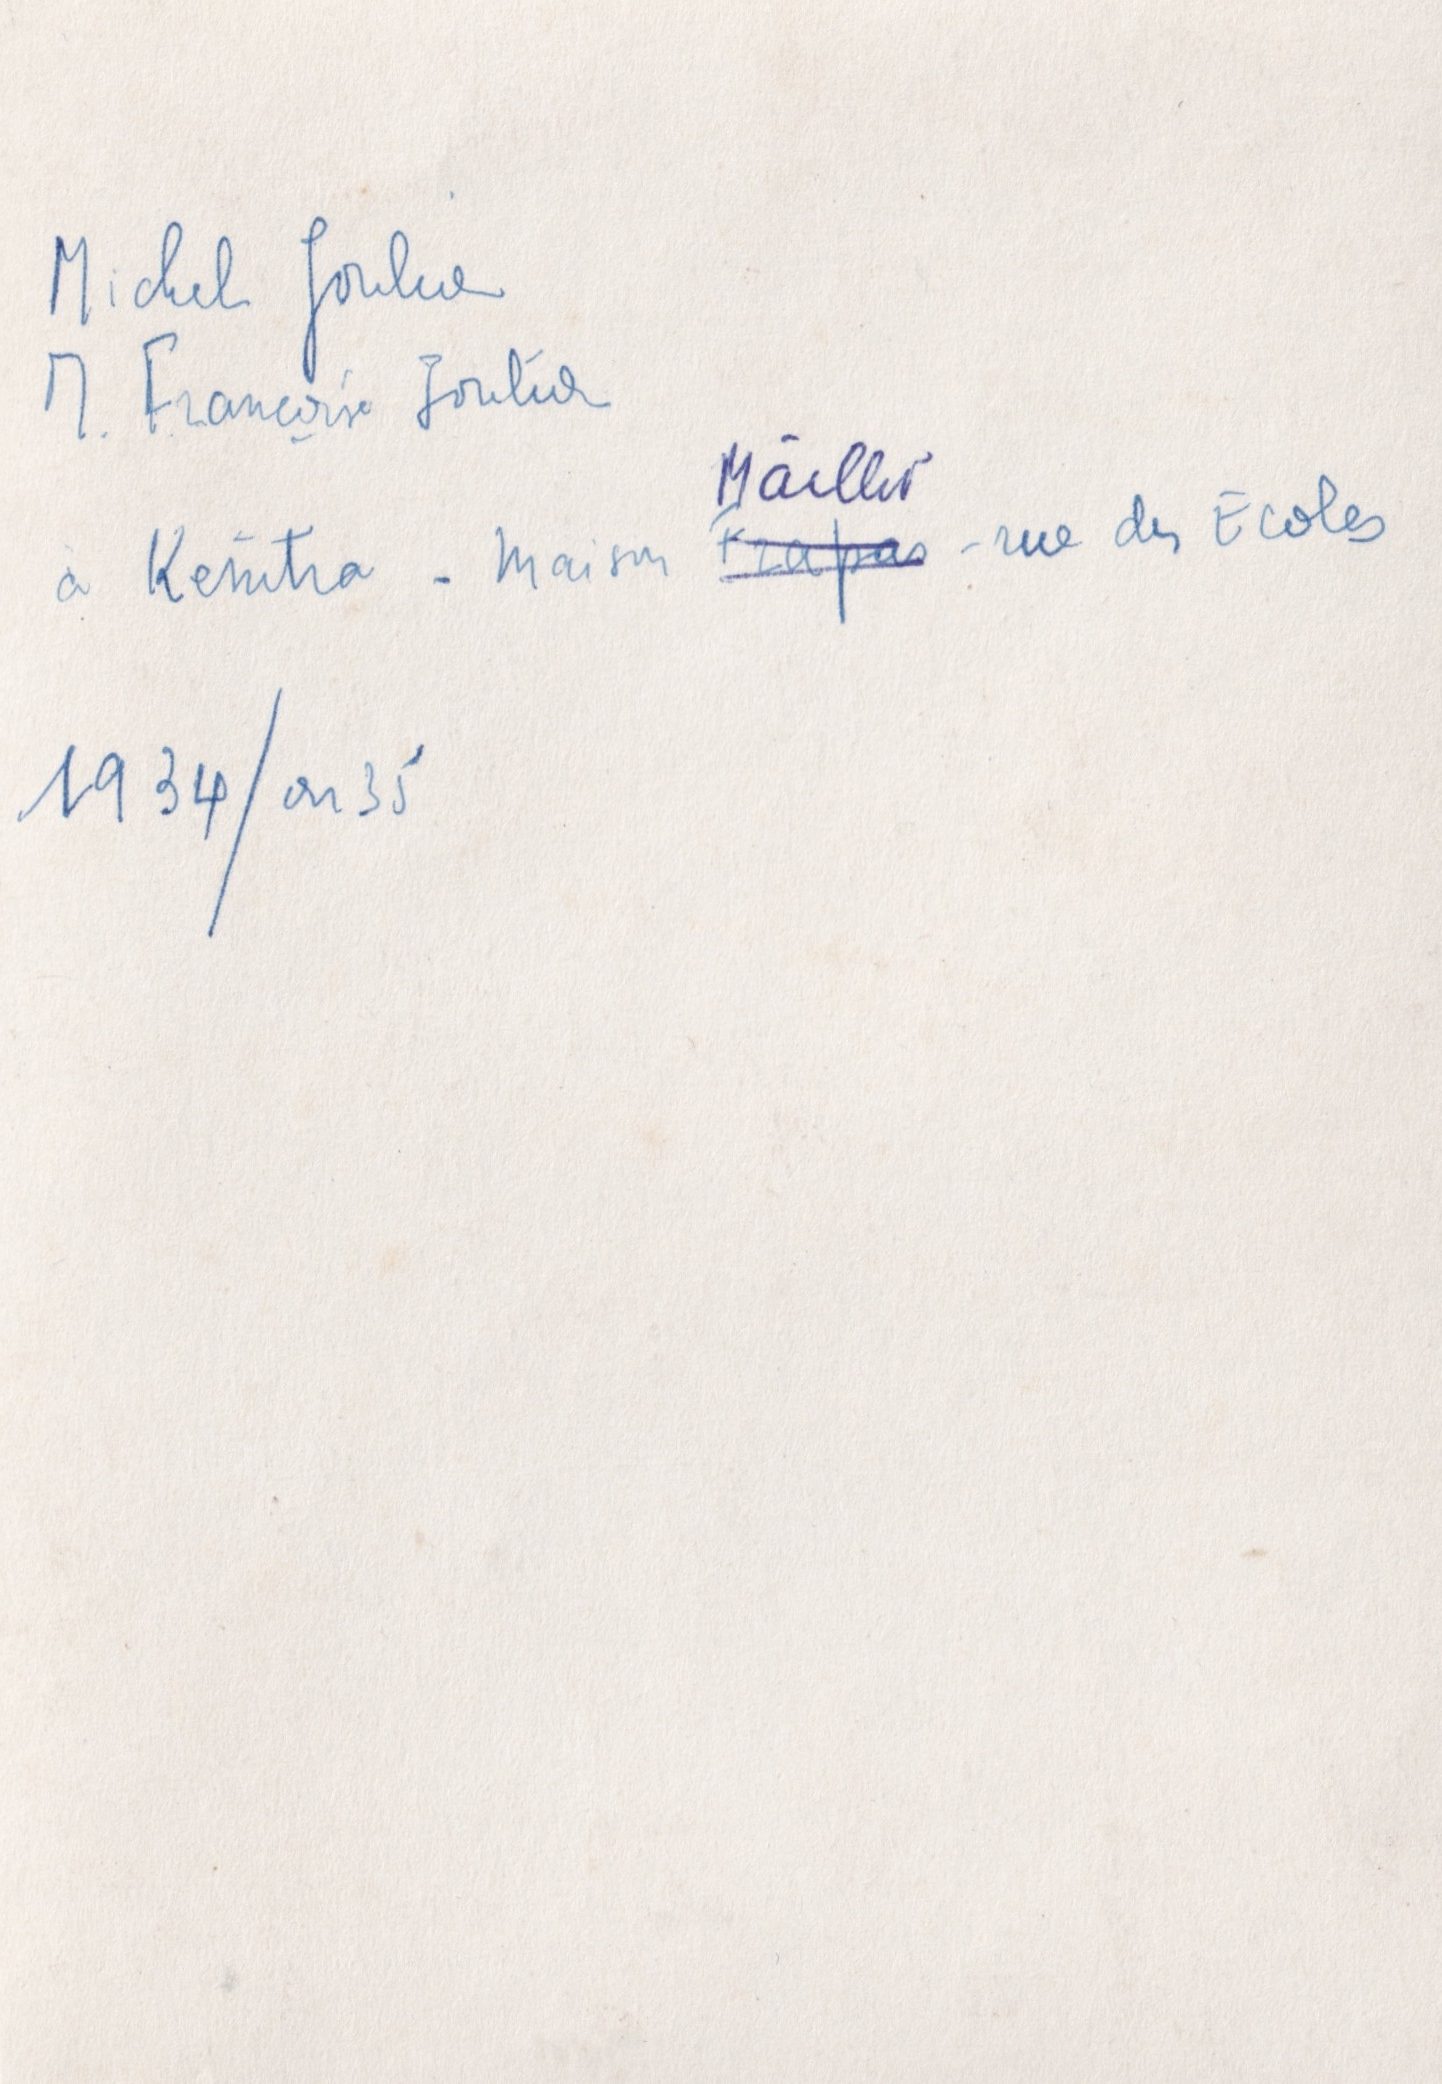 Michel Joulia
M. Françoise Joulia
Maillet
à Kénitra - Maison Frapas - rue des Ecoles
1934/ou 35